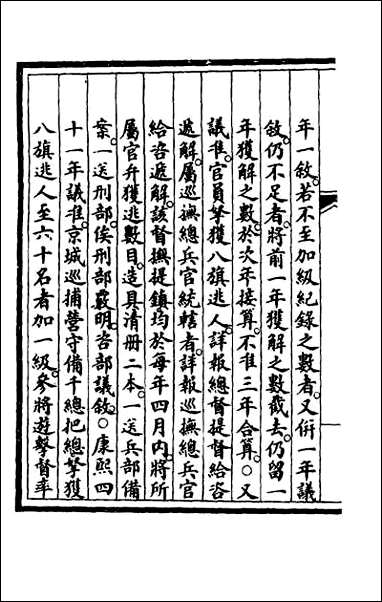 年一敘。若不至加級紀錄之數者。又併一年議
敘。仍不足者。將前一年獲解之數截去。仍留一
年獲解之數。於次年接算。不准三年合算。○又
議准。官員拏獲八旗逃人。詳報總督提督給咨
遞解。屬巡撫總兵官統轄者。詳報巡撫總兵官
給咨遞解。該督撫提鎮均於每年四月內。將所
屬官弁獲逃數目。造具清冊二本。一送兵部備
案。一送刑部。俟刑部覈明。咨部議敘。○康熙四
十一年議准。京城巡捕營守備千總把總拏獲
八旗逃人至六十名者加一級。參將遊擊督率